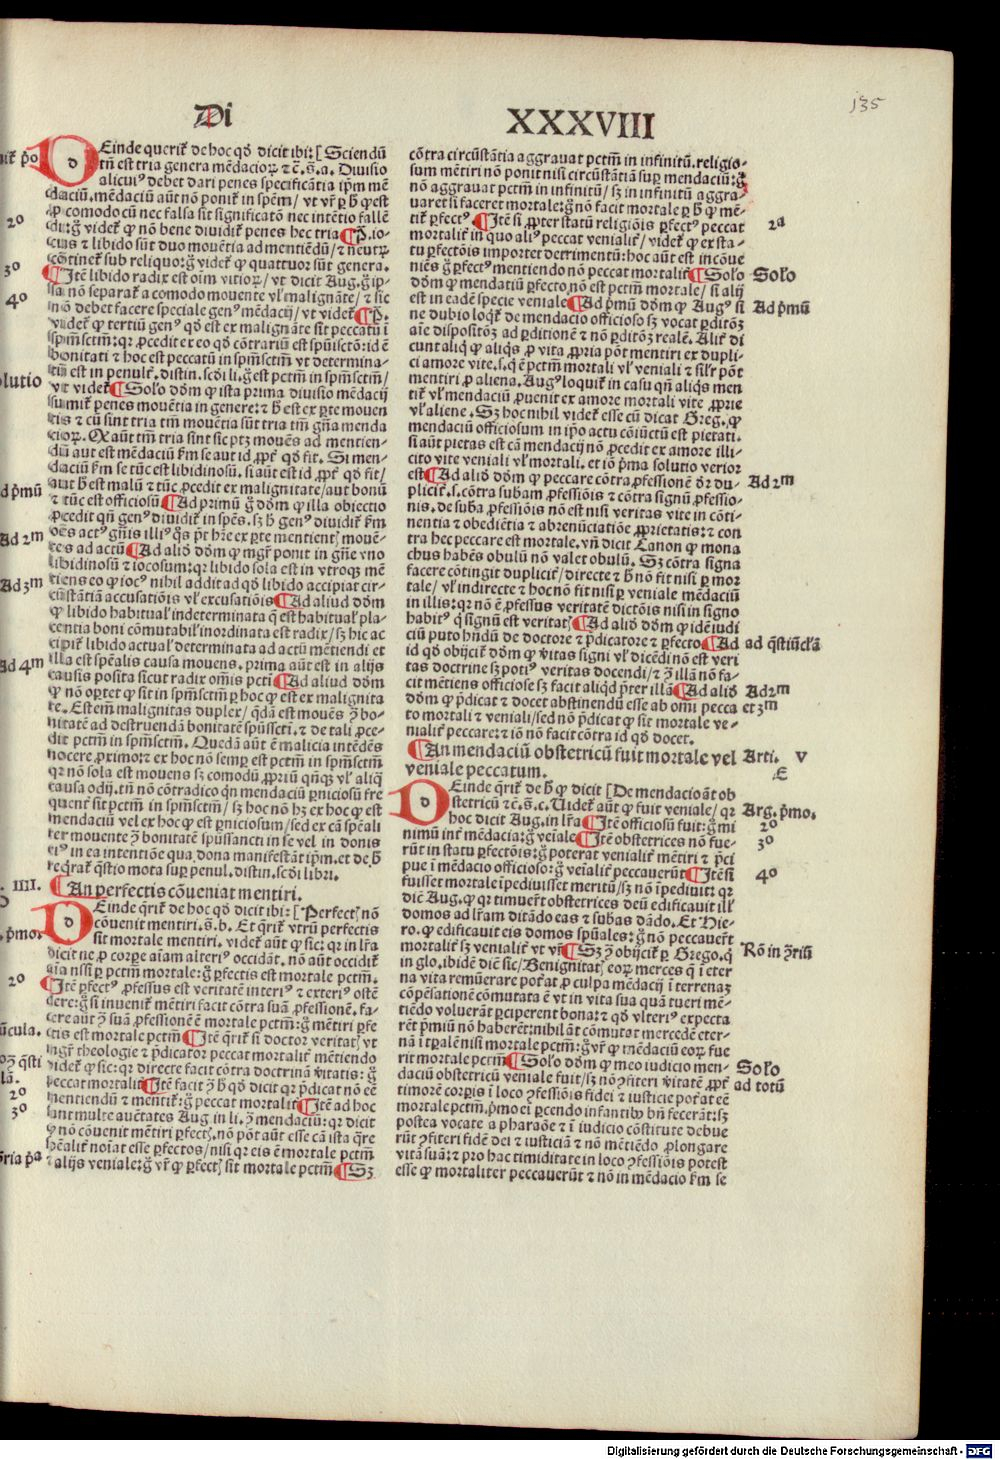 135
Di XXXVIII
DEinde querit̃ de hoc qd̃ dicit ibi: [Sciendũ
tñ est tria genera mẽdacioꝝ ⁊ c̃. s̃. a. Diuisio
alicui⁹ debet dari penes specificãtia ip̃m mẽ
daciũ. mẽdaciũ aũt nõ ponit̃ in spẽm / vt vr̃ ꝑ h̃ ꝙ est
ꝓ comodo cũ nec falsa sit significatõ nec intẽtio fallẽ
di: g̃ videt̃ ꝙ nõ bene diuidit̃ penes hec tria ¶ P̃. io-
cus ⁊ libido sũt duo mouẽtia ad mentiẽdũ / ⁊ neutꝝ
cõtinet̃ sub reliquo: g̃ videt̃ ꝙ quattuor sũt genera.
¶ Itẽ libido radix est oĩm vitioꝝ / vt dicit Aug. g̃ ip-
sa nõ separat̃ a comodo mouente vl̃ malignãte / ⁊ sic
nõ debet facere speciale gen⁹ mẽdacij / vt videt̃ ¶ P̃.
videt̃ ꝙ tertiũ gen⁹ qd̃ est ex malignãte sit peccatũ ĩ
sp̃m sctm̃: qꝛ ꝓcedit ex eo qd̃ cõtrariũ est sp̃ui sctõ: id ẽ
bonitati ⁊ hoc est peccatũ in sp̃m sctm̃ vt determina-
tũ est in penult̃. distin. scd̃i li. g̃ est pctm̃ in sp̃m sctm̃ /
vt videt̃ ¶ Solo dõm ꝙ ista prima diuisio mẽdacij
sumit̃ penes mouẽtia in genere: ⁊ h̃ est ex ꝑte mouen
tis ⁊ cũ sint tria tm̃ mouẽtia sũt tria tm̃ gña menda
cioꝝ. Ꝙ aũt tm̃ tria sint sic ptꝫ mouẽs ad mentien-
dũ aut est mẽdaciũ ẜm se aut id ꝓpt̃ qd̃ fit. Si men-
daciũ ẜm se tũc est libidinosũ. si aũt est id ꝓpt̃ qd̃ fit /
aut h̃ est malũ ⁊ tũc ꝓcedit ex malignitate / aut bonũ
⁊ tũc est officiosũ ¶ Ad primũ g̃ dõm ꝙ illa obiectio
ꝓcedit qñ gen⁹ diuidit̃ in spẽs. sꝫ h̃ gen⁹ diuidit̃ ẜm
oẽs act⁹ gñis illi⁹ q̃s pt̃ hr̃e ex ꝑte mentient̃ mouẽ-
tes ad actũ ¶ Ad aliõ dõm ꝙ mgr̃ ponit in gñe vno
libidinosũ ⁊ iocosum: qꝛ libido sola est in vtroqꝫ mẽ
tiens eo ꝙ ioc⁹ nihil addit ad qd̃ libido accipiat cir-
cũstãtiã accusatiõis vl̃ excusatiõis ¶ Ad aliud dõm
ꝙ libido habitual̃ indeterminata q̃ est habitual̃ pla-
centia boni cõmutabil̃ inordinata est radix / sꝫ hic ac
cipit̃ libido actual̃ determinata ad actũ mẽtiendi et
illa est sp̃ealis causa mouens. prima aũt est in alijs
causis posita sicut radix omĩs pcti ¶ Ad aliud dõm
ꝙ nõ oꝑtet ꝙ sit in sp̃m sctm̃ ꝑ hoc ꝙ est ex malignita
te. Est em̃ malignitas duplex / q̃dã est mouẽs ꝯ̃ bo-
nitatẽ ad destruendã bonitatẽ sp̃ũs sctĩ. ⁊ de tali ꝓce-
dit pctm̃ in sp̃m sctm̃. Quedã aũt ẽ malicia intẽdẽs
nocere ꝓximo: ⁊ ex hoc nõ semꝑ est pctm̃ in sp̃m sctm̃
qꝛ nõ sola est mouens sꝫ comodũ ꝓpriũ qñqꝫ vl̃ aliq̃
causa odij. tñ nõ cõtradico qñ mendaciũ ꝑniciosũ fre
quent̃ sit pctm̃ in sp̃m sctm̃ / sꝫ hoc nõ hꝫ ex hoc ꝙ est
mendaciũ vel ex hoc ꝙ est ꝑniciosum / sed ex cã sp̃eali
ter mouente ꝯ̃ bonitatẽ sp̃ũssancti in se vel in donis
ei⁹ in ea intentiõe qua dona manifestãt ip̃m. et de h̃
req̃rat̃ q̃stio mota sup penul. distin. scd̃i libri.
¶ An perfectis cõueniat mentiri.
DEinde q̃rit̃ de hoc qd̃ dicit ibi: [Perfect̃ nõ
cõuenit mentiri. s̃. b. Et q̃rit̃ vtrũ perfectis
sit mortale mentiri. videt̃ aũt ꝙ sic: qꝛ in lr̃a
dicit ne ꝓ corꝑe aĩam alteri⁹ occidãt. nõ aũt occidit̃
aĩa nisi ꝑ pctm̃ mortale: g̃ ꝑfectis est mortale pctm̃.
¶ Itẽ ꝑfect⁹ ꝓfessus est veritatẽ interi⁹ ⁊ exteri⁹ ostẽ
dere: g̃ si inuenit̃ mẽtiri facit cõtra suã ꝓfessionẽ. fa-
cere aũt ꝯ̃ suã ꝓfessionẽ ẽ mortale pctm̃: g̃ mẽtiri ꝑfe
ctis est mortale pctm̃ ¶ Itẽ q̃rit̃ si doctor veritat̃ vt
mgr̃ theologie ⁊ p̃dicator peccat mortalit̃ mẽtiendo
videt̃ ꝙ sic: qꝛ directe facit cõtra doctrinã v̾itatis: g̃
peccat mortalit̃ ¶ Itẽ facit ꝯ̃ h̃ qd̃ dicit qꝛ p̃dicat nõ eẽ
mentiendũ ⁊ mentit̃: g̃ peccat mortalit̃ ¶ Itẽ ad hoc
sunt multe auc̃tates Aug in li. ꝯ̃ mendaciũ: qꝛ dicit
ꝙ nõ cõuenit mẽtiri ꝑfect̃. nõ põt aũt esse cã ista q̃re
sp̃ealit̃ noĩat esse ꝑfectos / nisi qꝛ eis ẽ mortale pctm̃
⁊ alijs veniale: g̃ vr̃ ꝙ ꝑfect̃ sit mortale pctm̃ ¶ Sꝫ
cõtra circũstãtia aggrauat pctm̃ in infinitũ. religio-
sum mẽtiri nõ ponit nisi circũstãtiã suꝑ mendaciũ: g̃
nõ aggrauat pctm̃ in infinitũ / sꝫ in infinitũ aggra-
uaret si faceret mortale: g̃ nõ facit mortale ꝑ h̃ ꝙ mẽ-
tit̃ ꝑfect⁹. ¶ Itẽ si ꝓpter statũ religiõis ꝑfect⁹ peccat
mortalit̃ in quo ali⁹ peccat venialit̃ / videt̃ ꝙ ex sta-
tu ꝑfectõis importet detrimentũ: hoc aũt est incõue
niẽs g̃ ꝑfect⁹ mentiendo nõ peccat mortalit̃ ¶ Solo
dõm ꝙ mendatiũ ꝑfecto nõ est pctm̃ mortale / si alij
est in eadẽ specie veniale ¶ Ad p̃mũ dõm ꝙ Aug⁹ si
ne dubio loqt̃ de mendacio officioso sꝫ vocat ꝑditõꝫ
aĩe dispositõꝫ ad ꝑditionẽ ⁊ nõ ꝑditõꝫ realẽ. Alit̃ di
cunt aliq̃ ꝙ aliq̃s ꝓ vita ꝓpria põt mentiri ex dupli-
ci amore vite. s. q̃ ẽ pctm̃ mortali vl̃ veniali ⁊ sil̃r põt
mentiri ꝓ aliena. Aug⁹ loquit̃ in casu qñ aliq̃s men
tit̃ vl̃ mendaciũ ꝓuenit ex amore mortali vite ꝓprie
vl̃ aliene. Sꝫ hoc nihil videt̃ esse cũ dicat Greg. ꝙ
mendaciũ officiosum in ip̃o actu cõiũctũ est pietati.
si aũt pietas est cã mendacij nõ ꝓcedit ex amore illi-
cito vite veniali vl̃ mortali. et iõ p̃ma solutio verior
est ¶ Ad aliõ dõm ꝙ peccare cõtra ꝓfessionẽ dr̃ du-
plicit̃. s. cõtra subam ꝓfessiõis ⁊ cõtra signũ ꝓfessio-
nis. de suba ꝓfessiõis nõ est nisi veritas vite in cõti-
nentia ⁊ obediẽtia ⁊ abrenũciatiõe ꝓprietatis: ⁊ con
tra hec peccare est mortale. vñ dicit Canon ꝙ mona
chus habẽs obulũ nõ valet obulũ. Sꝫ cõtra signa
facere cõtingit duplicit̃ / directe ⁊ h̃ nõ fit nisi ꝑ mor
tale / vl̃ indirecte ⁊ hoc nõ fit nisi ꝑ veniale mẽdaciũ
in illis: qꝛ nõ ẽ ꝓfessus veritatẽ dictõis nisi in signo
habit⁹ q̃ signũ est veritat̃ ¶ Ad aliõ dõm ꝙ idẽ iudi
ciũ puto hñdũ de doctore ⁊ p̃dicatore ⁊ ꝑfecto ¶ Ad
id qd̃ obijcit̃ dõm ꝙ v̾itas signi vl̃ dicẽdi nõ est veri
tas doctrine sꝫ poti⁹ veritas docendi / ⁊ ꝯ̃ illã nõ fa-
cit mẽtiens officiose sꝫ facit aliqd̃ p̃ter illã ¶ Ad aliõ
dõm ꝙ p̃dicat ⁊ docet abstinendũ esse ab omĩ pecca
to mortali ⁊ veniali / sed nõ p̃dicat ꝙ sit mortale ve-
nialit̃ peccare: ⁊ iõ nõ facit cõtra id qd̃ docet.
¶ An mendaciũ obstetricũ fuit mortale vel
veniale peccatum.
DEinde q̃rit̃ de h̃ ꝙ dicit [De mendacio ãt ob
stetricũ ⁊c̃. s̃. c. Uidet̃ aũt ꝙ fuit veniale / qꝛ
hoc dicit Aug. in lr̃a ¶ Itẽ officiosũ fuit: g̃ mi
nimũ int̃ mẽdacia: g̃ veĩale ¶ Itẽ obstetrices nõ fue-
rũt in statu ꝑfectõis: g̃ poterat venialit̃ mẽtiri ⁊ p̃ci
pue ĩ mẽdacio officioso: g̃ veĩalit̃ peccauer̃t ¶ Itẽ si
fuisset mortale ĩpediuisset meritũ / sꝫ nõ ĩpediuit: qꝛ
diẽ Aug. ꝙ qꝛ timuer̃t obstetrices deũ edificauit ill̃
domos ad lr̃am ditãdo eas ⁊ subas dãdo. Et Hie-
ro. ꝙ edificauit eis domos sp̃uales: g̃ nõ peccauer̃t
mortalit̃ sꝫ venialit̃ vt vr̃ ¶ Sꝫ ꝯ̃ obijcit̃ ꝑ Grego. q̃
in glo. ibidẽ diẽ sic / Benignitat̃ eoꝝ merces q̃ ĩ eter
na vita remũerare pot̃at ꝓ culpa mẽdacij ĩ terrenaꝫ
cõpẽsationẽ cõmutata ẽ vt in vita sua quã tueri mẽ-
tiẽdo voluerãt ꝑciperent bona: ⁊ qd̃ vlteri⁹ expecta
rẽt p̃miũ nõ haberẽt: nihil ãt cõmutat mercedẽ eter-
nã ĩ tꝑalẽ nisi mortale pctm̃: g̃ vr̃ ꝙ mẽdaciũ eoꝝ fue
rit mortale pctm̃ ¶ Solo dõm ꝙ meo iudicio men-
daciũ obstetricũ veniale fuit / sꝫ nõ ꝯfiteri v̾itatẽ ꝓpt̃
timorẽ corꝑis ĩ loco ꝯfessiõis fidei ⁊ iusticie pot̃at eẽ
mortale pctm̃. p̃mo ei ꝑcendo infantiƀ bñ fecerãt: sꝫ
postea vocate a pharaõe ⁊ ĩ iudicio cõstitute debue
rũt ꝯfiteri fidẽ dei ⁊ iusticiã ⁊ nõ mẽtiẽdo ꝓlongare
vitã suã: ⁊ pro hac timiditate in loco ꝯfessiõis potest
esse ꝙ mortaliter peccauerũt ⁊ nõ in mẽdacio ẜm se
2º
3º
4º
Ad 2m
Ad 3m
Ad 4m
IIII.
2º
2º
3º
2ª
Solo
Ad p̃mũ
Ad 2m
ad q̃stiũcl̃ã
Ad 2m
et 3m
Arti. V
E
Arg. p̃mo.
2º
3º
4º
Rõ in ꝯ̃riũ
Solo
ad totũ
Digitalisierung gefördert durch die Deutsche Forschungsgemeinschaft - DFG